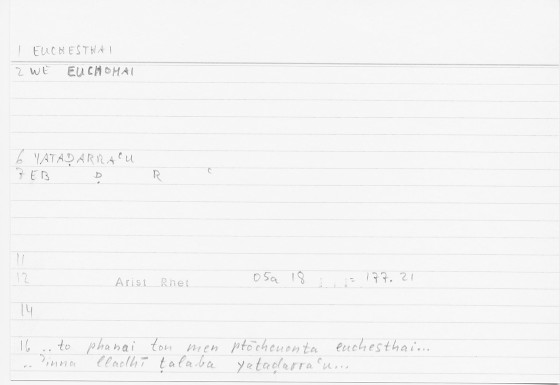 1 EUCHESTHAI
2 WE EUCHOMAI
6 YATAḌARRAʿU
7 EB Ḍ R ʿ
11
12 Arist Rhet 05a 18 ; ..= 177.21
14
16 ..to phanai ton men ptōcheuonta euchesthai...
..ʾinna lladhī ṭalaba yataḍarraʿu...